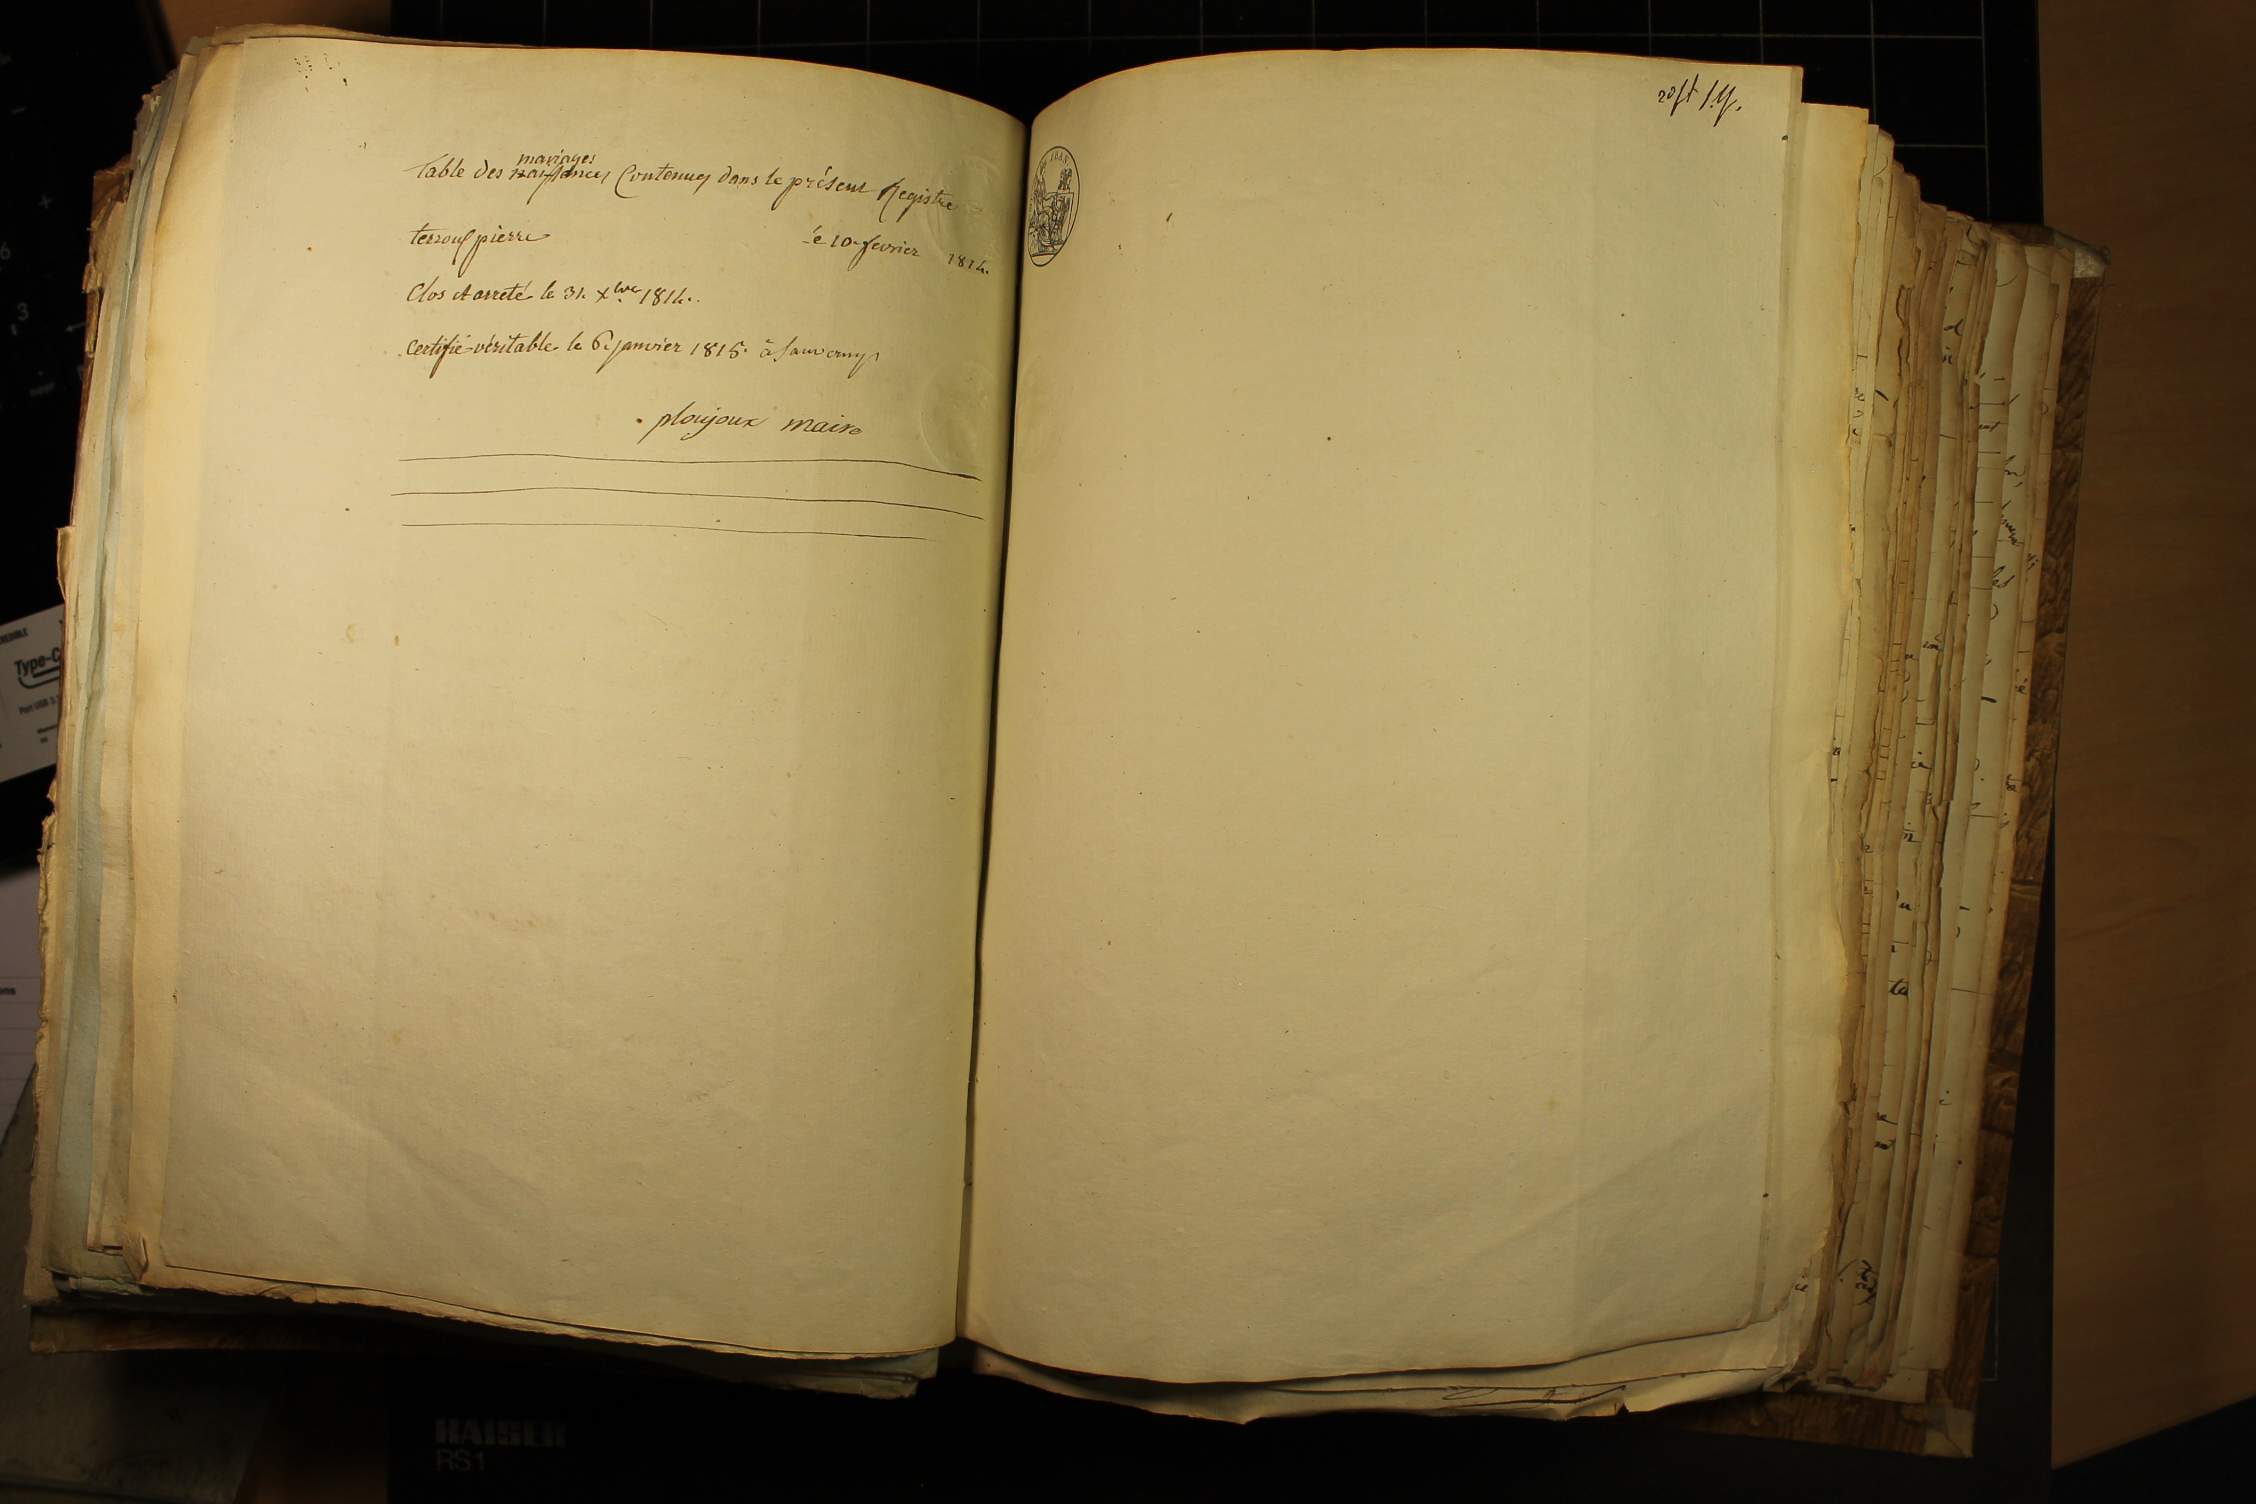 mariages
Table des naissances Contenues dans le présent Registre
terroux pierre le 10 fevrier 1814.
Clos et arreté le 31. Xbre 1814.
certifié véritable le 6 janvier 1815. à Sauverny
ploujoux maire
Type-C
KAISER
RS1